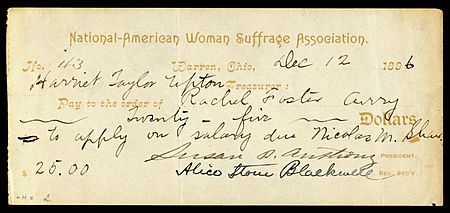 National-American Woman Suffrage Association.
No. 113 Warren, Ohio, Dec 12 1896
Harriet Taylor Upton Treasurer:
Pay to the order of Rachel Foster Avery
Twenty-five Dollars
to apply on salary due Nicolas M. Shaw
Susan B. Anthony PRESIDENT.
$25.00 Alice Stone Blackwell REC. SEC'Y.